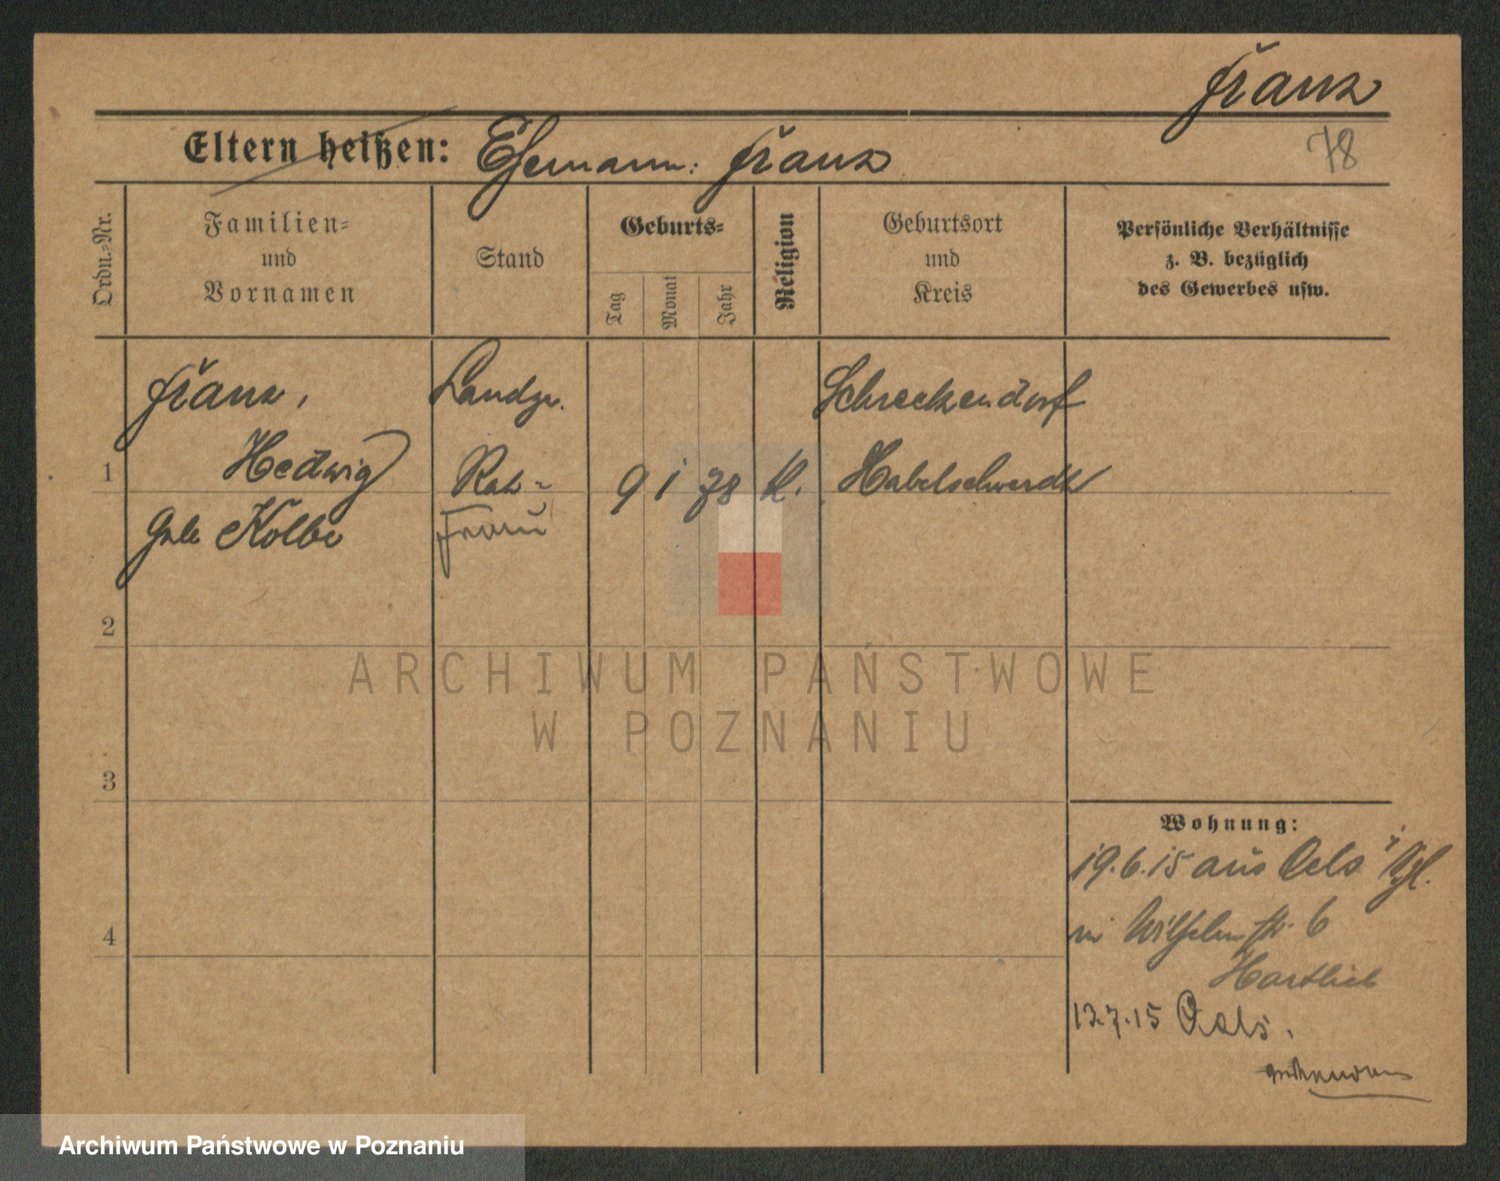 Franz
78
Eltern heißen: Ehemann: Franz
Ordn.-Nr.
Familien-
und
Vornamen
Stand
Geburts-
Tag
Monat
Jahr
Religion
Geburtsort
und
Kreis
Persönliche Verhältnisse
z. B. bezüglich
des Gewerbes usw.
1
Franz,
Hedwig
geb Kolbe
Landgr.
Rats-
Frau
9 1 78 K.
Schreckendorf
Habelschwerdt
2
3
4
Wohnung:
19.6.15 aus Oels
Wilhelmstr. 6
Hartlieb
13.7.15 Oels.
ARCHIWUM PAŃSTWOWE
W POZNANIU
Archiwum Państwowe w Poznaniu